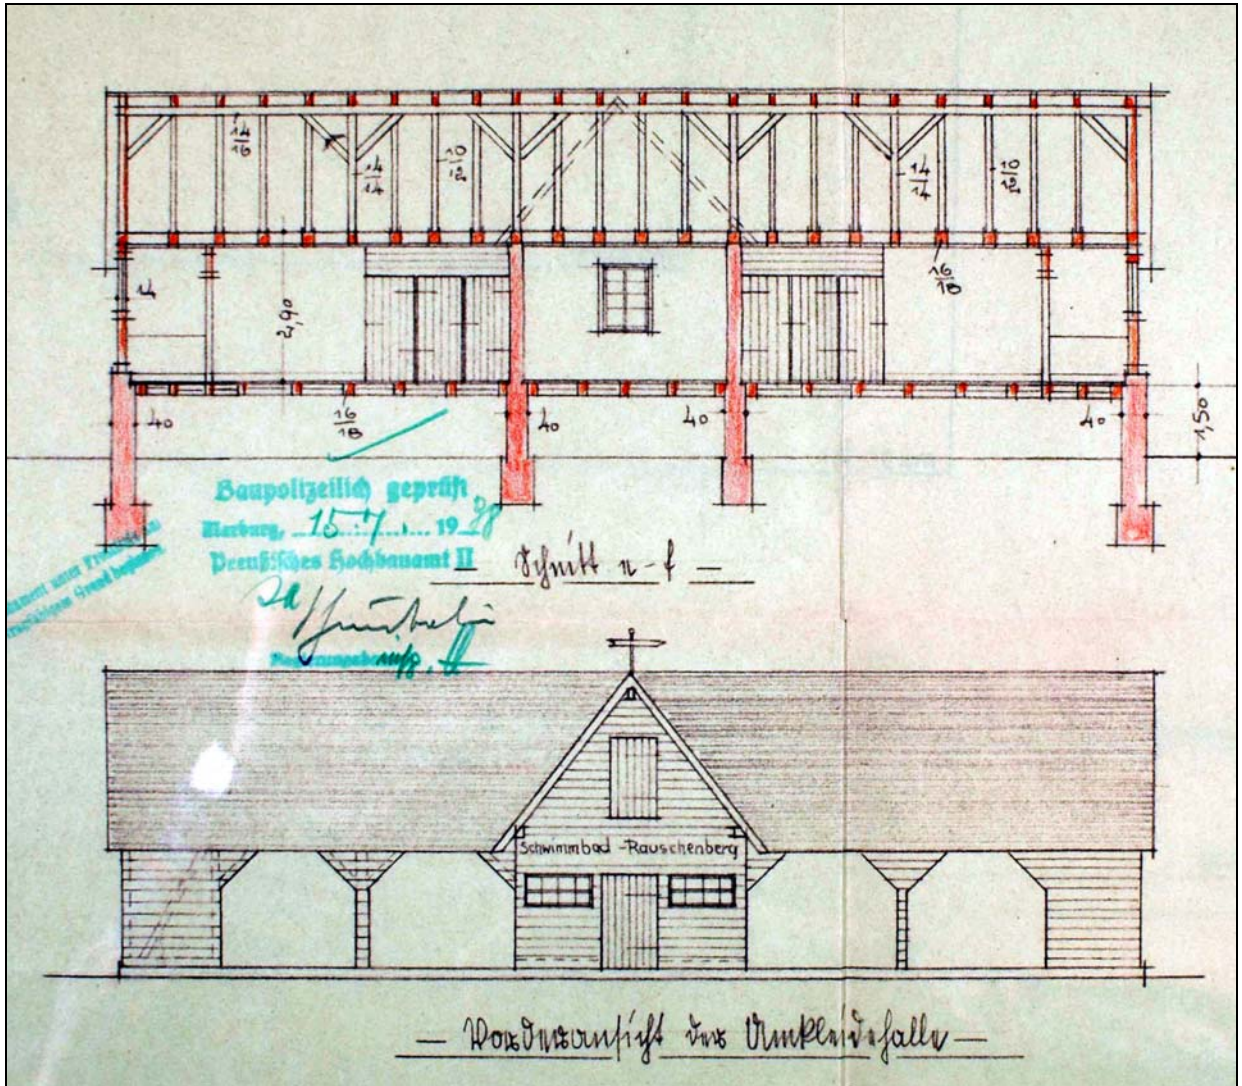 14/16
14/14
10/12
14/14
10/12
2,90
16/18
40
16/18
40
40
40
1,50
Baupolizeilich geprüft
Marburg, 15.7. 19
Preußisches Hochbauamt II
— Schnitt e-f —
Schwimmbad - Rauschenberg
— Vorderansicht der Umkleidehalle —